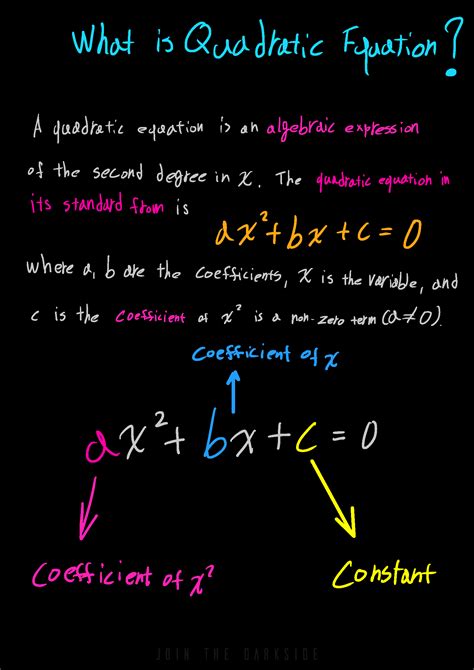 What is Quadratic Equation?
A quadratic equation is an algebraic expression
of the second degree in x. The quadratic equation in
its standard from is
ax²+bx+c=0
where a, b are the coefficients, x is the variable, and
c is the coefficient of x² is a non-zero term (a≠0).
Coefficient of x
ax²+bx+c=0
Coefficient of x²
Constant
JOIN THE DARKSIDE